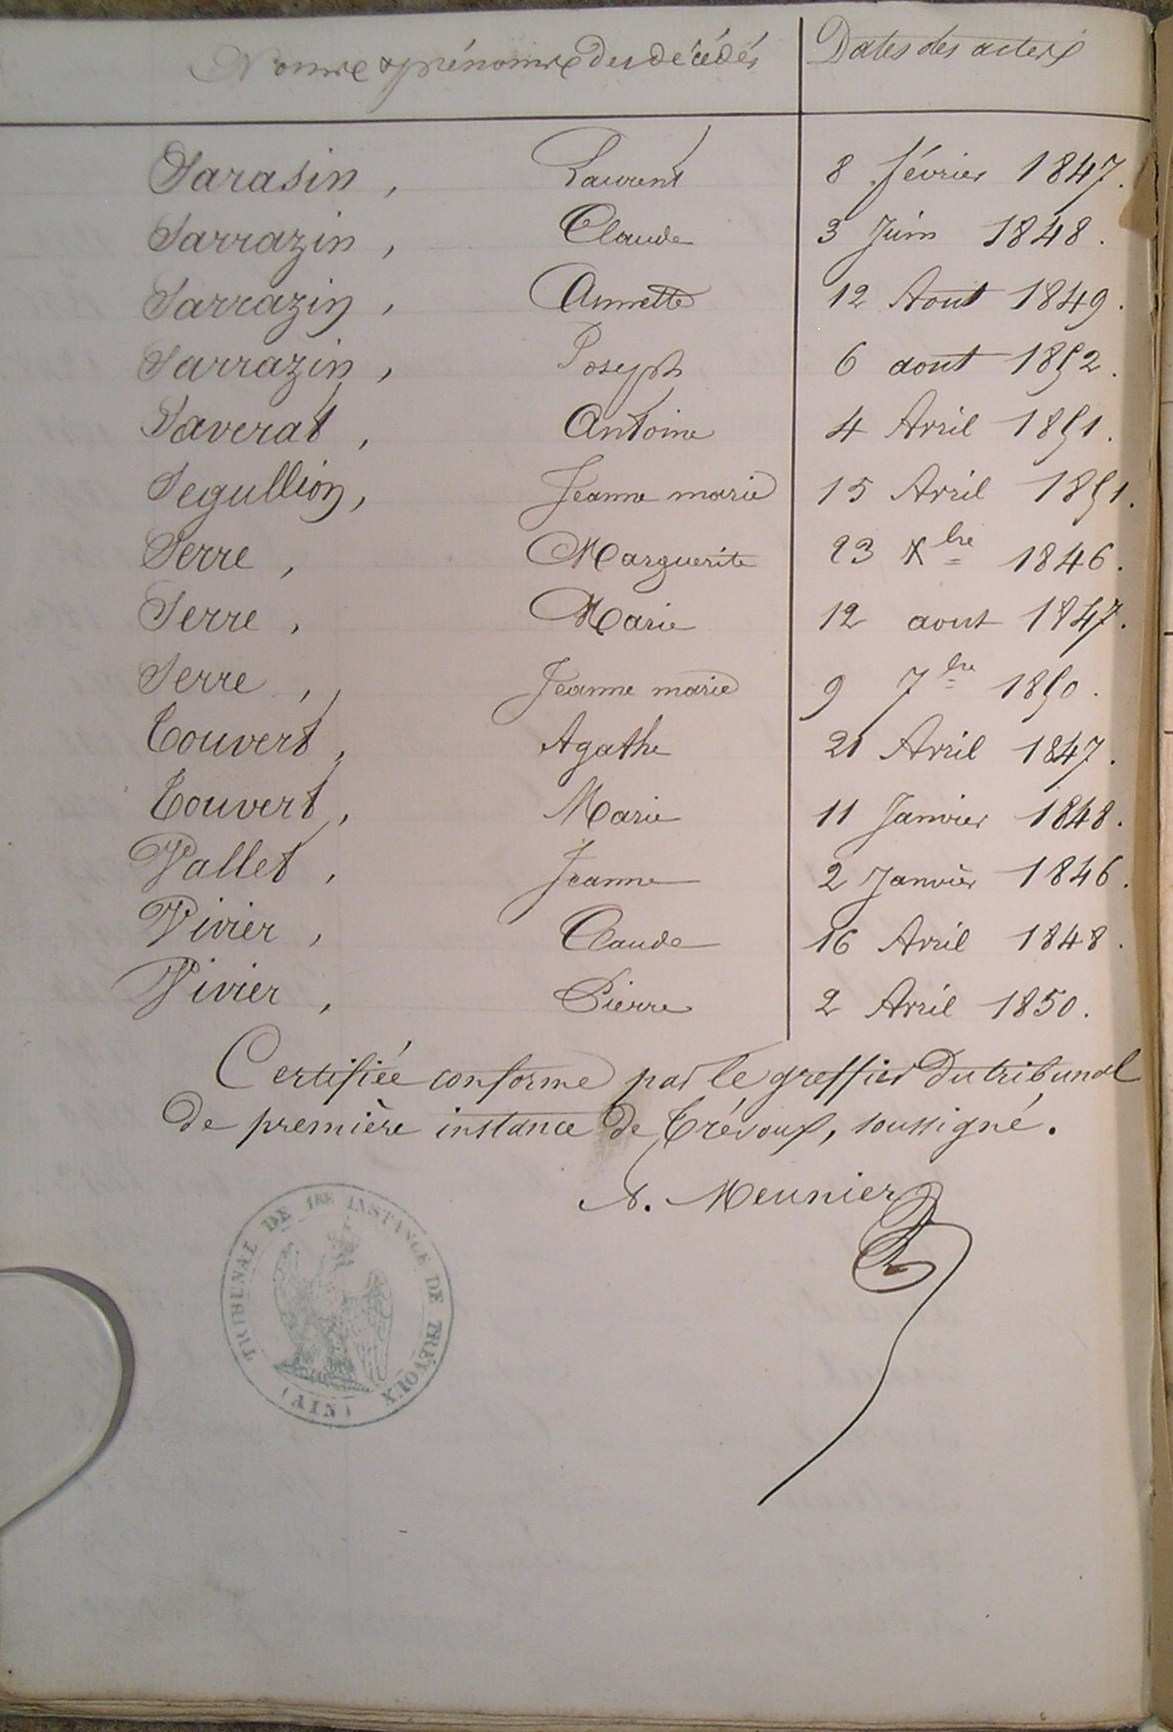 Noms & prénoms des décédés Dates des actes
Sarasin, Laurent 8 février 1847.
Sarrazin, Claude 3 Juin 1848.
Sarrazin, Annette 12 Aout 1849.
Sarrazin, Joseph 6 aout 1852.
Saverat, Antoine 4 Avril 1851.
Segullion, Jeanne marie 15 Avril 1851.
Serre, Marguerite 23 Xbre 1846.
Serre, Marie 12 aout 1847.
Serre, Jeanne marie 9 7bre 1850.
Touvert, Agathe 21 Avril 1847.
Touvert, Marie 11 Janvier 1848.
Vallet, Jeanne 2 Janvier 1846.
Vivier, Claude 16 Avril 1848.
Vivier, Pierre 2 Avril 1850.
Certifiée conforme par le greffier du tribunal
de première instance de Trévoux, soussigné.
N. Meunier
TRIBUNAL DE 1RE INSTANCE DE TRÉVOUX
(AIN)